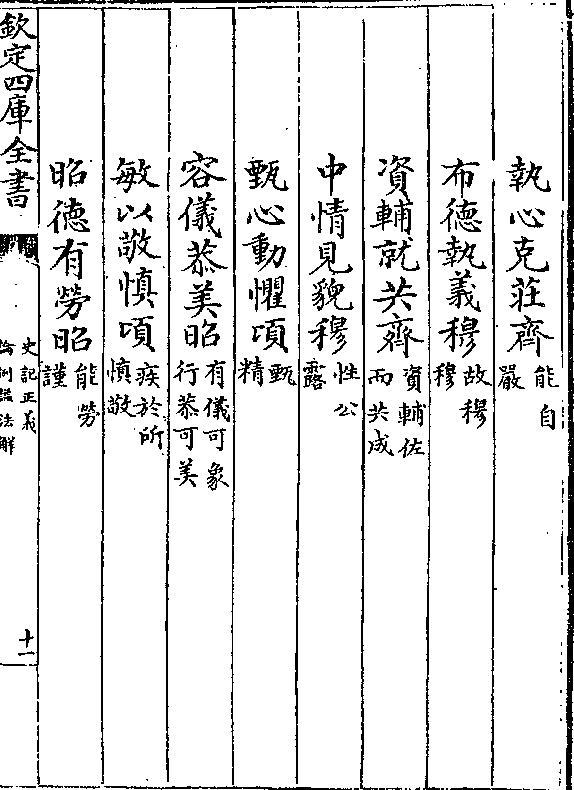 執心克莊齊能自嚴
布德執義穆故穆穆
資輔就共齊資輔佐而共成
中情見貌穆性公露
甄心動懼頃甄精
容儀恭美昭有儀可象行恭可美
敏以敬慎頃疾於所慎敬
昭德有勞昭能勞謹
欽定四庫全書
史記正義
論例諡法解
十一